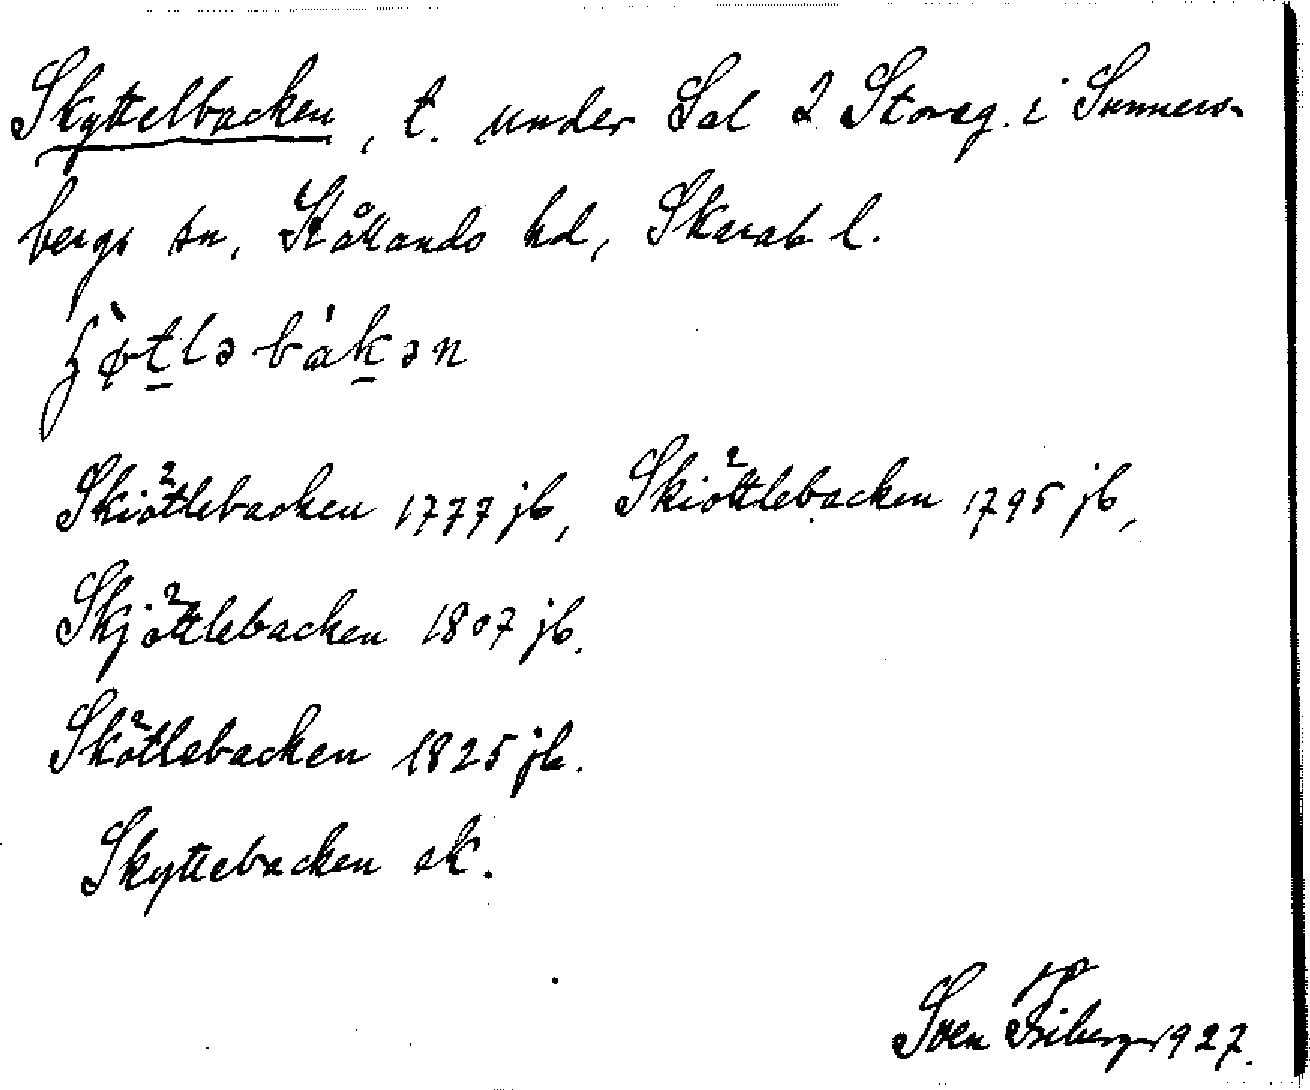 Skyttelbacken, t. under Sal 2 Storeg. i Sunners-
bergs sn, Kållands hd, Skarab l.
ʃø̀tləbákən
Skiöttlebacken 1777 jb, Skiöttlebacken 1795 jb,
Skjöttlebacken 1807 jb.
Skötlebacken 1825 jb.
Skyttebacken ek.
Sven Friberg 1927.